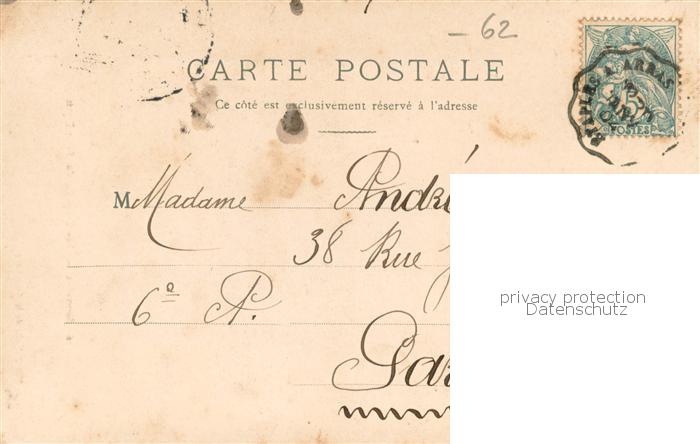 62
CARTE POSTALE
Ce côté est exclusivement réservé à l'adresse
ARRAS
POSTES
M Madame André
38 Rue
6º A.
privacy protection
Datenschutz